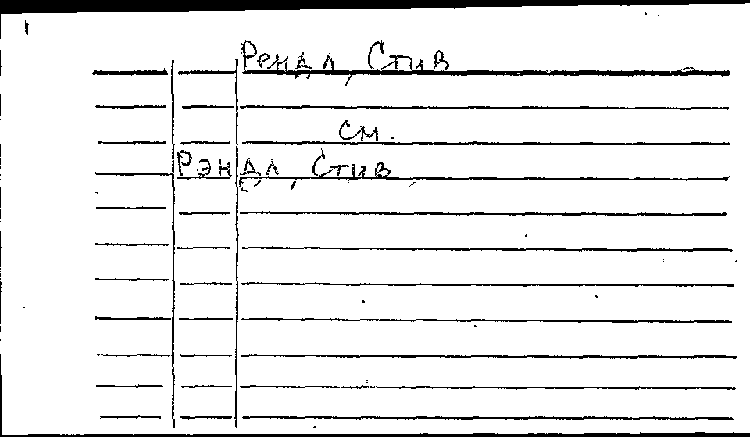 Рендл, Стив
см.
Рэндл, Стив